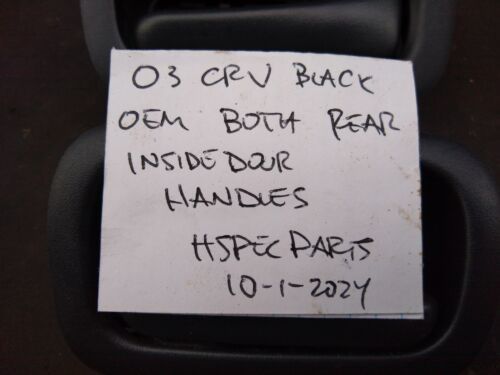 03 CRV BLACK
OEM BOTH REAR
INSIDE DOOR
HANDLES
HSPEC PARTS
10-1-2024